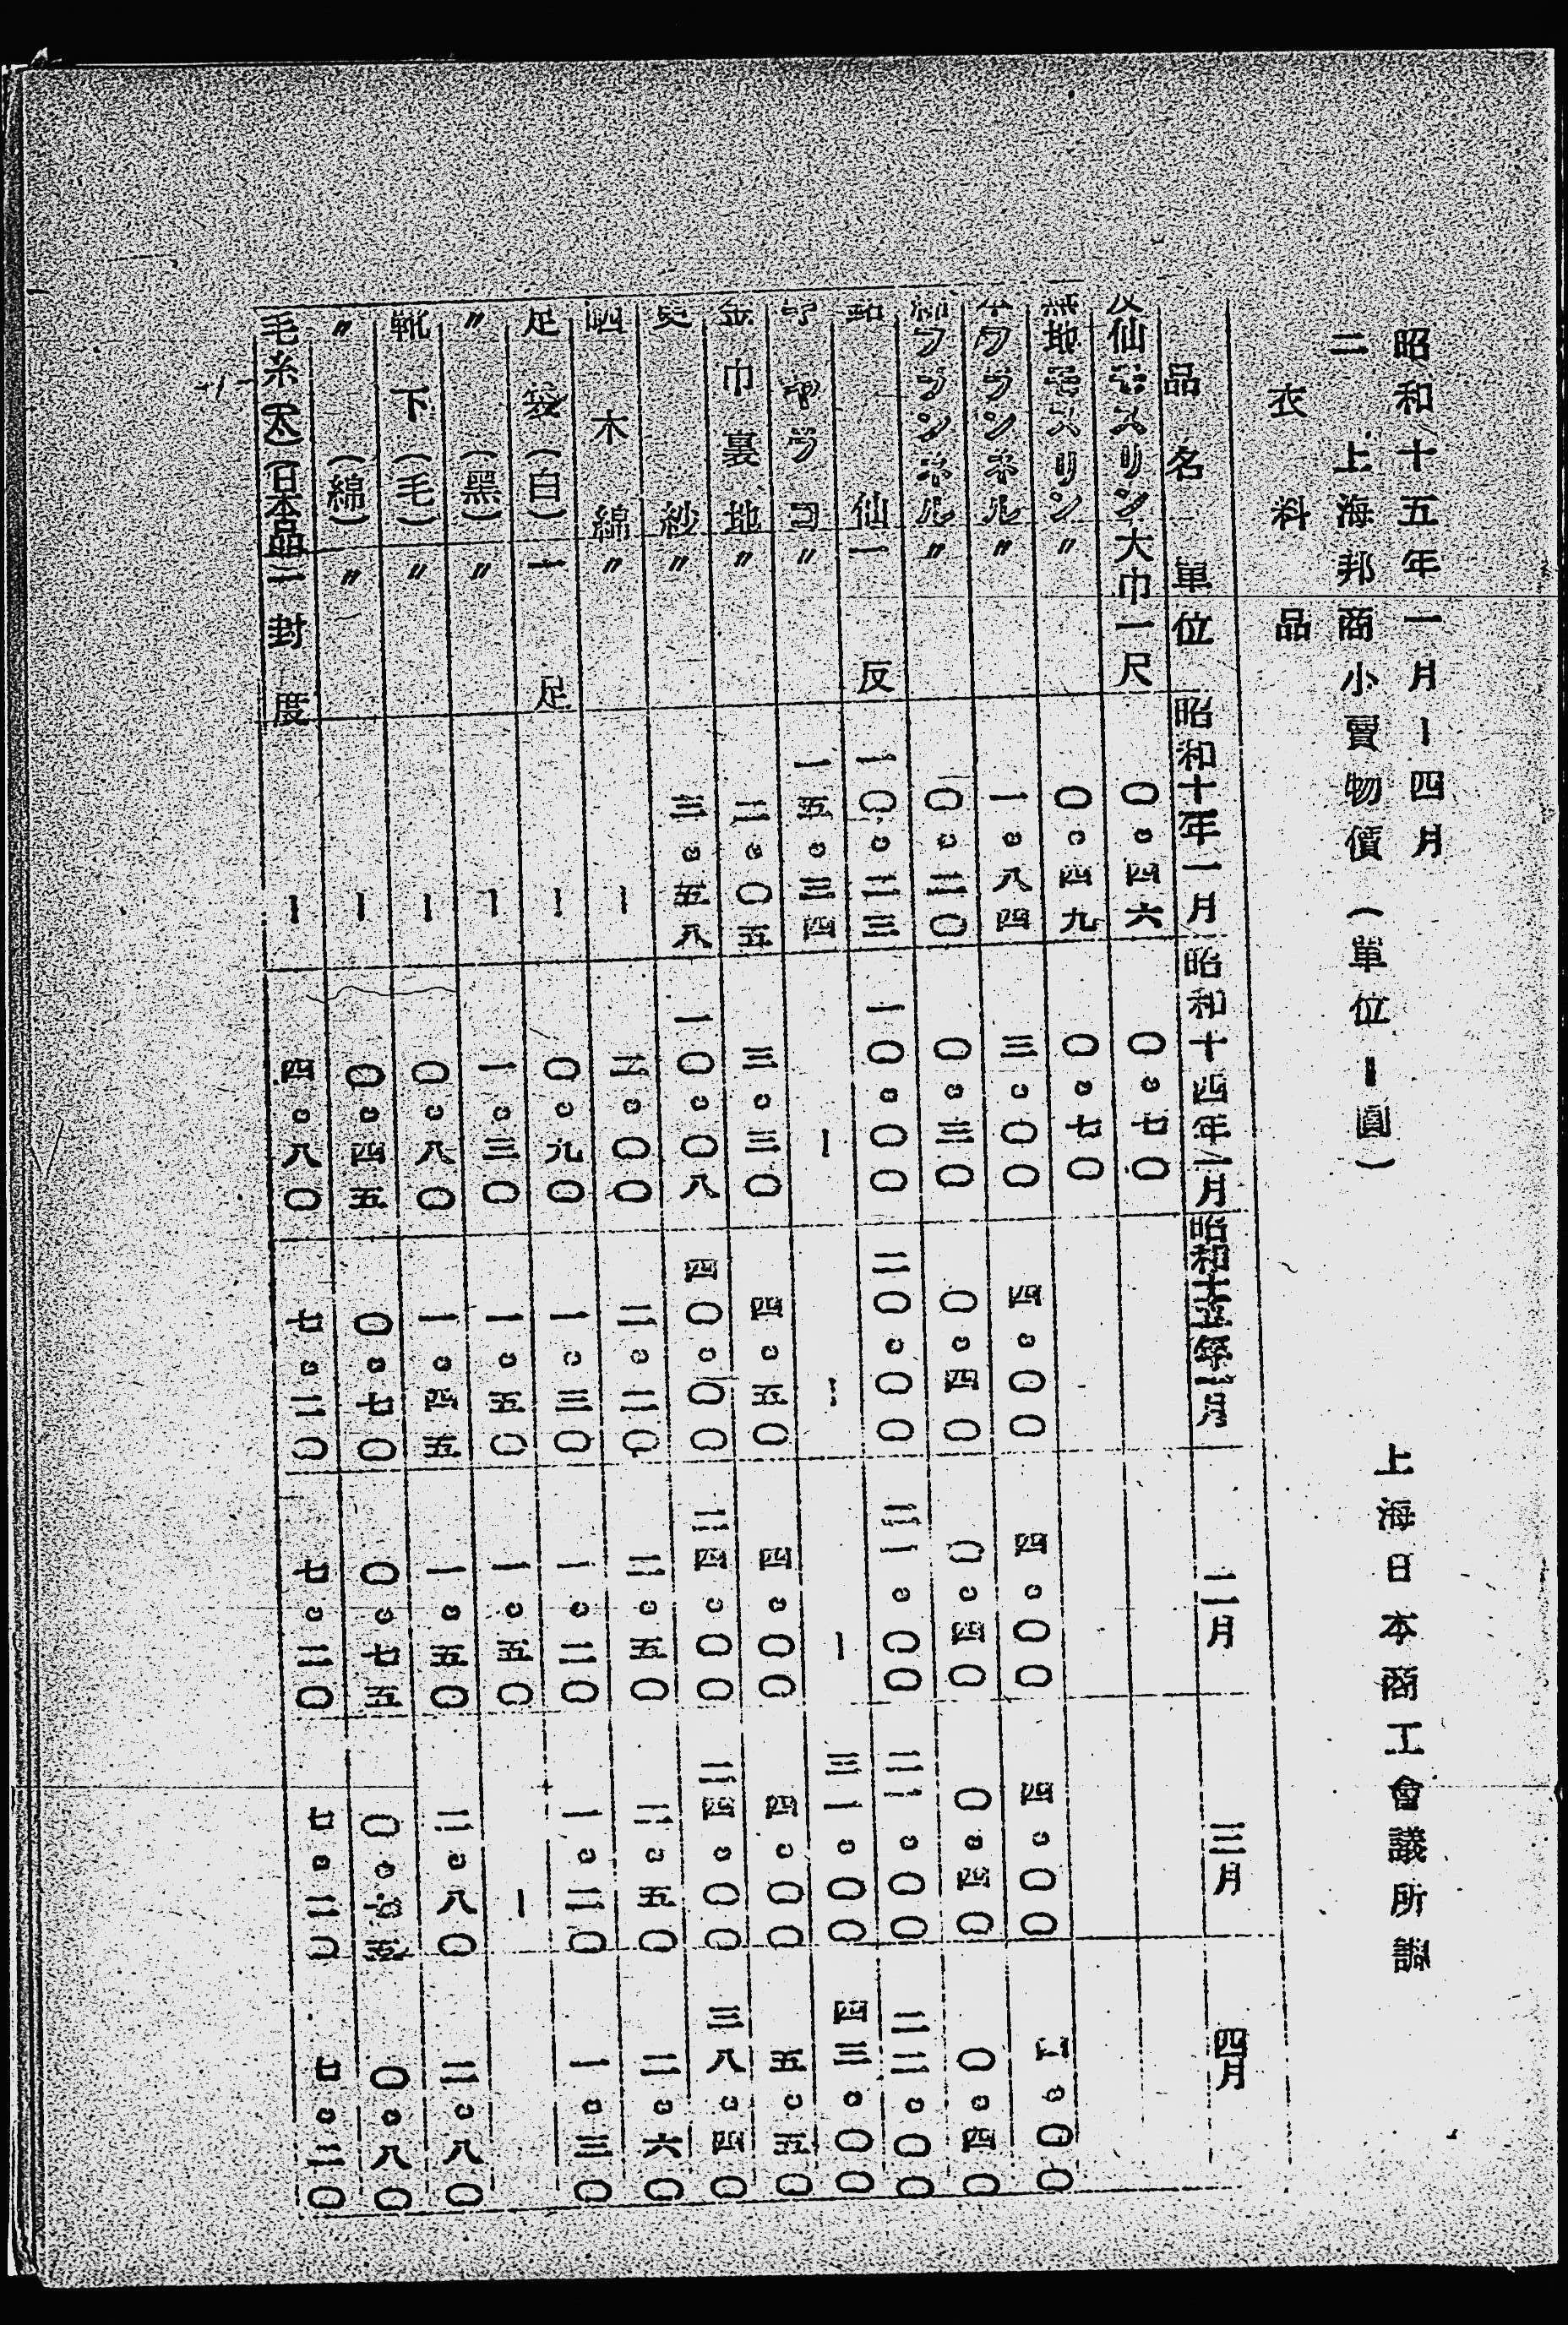 昭和十五年一月ー四月
二 上海邦商小賣物價(單位ー圓) 上海日本商工會議所調
衣料品
品名 單位 昭和十年一月 昭和十四年一月 昭和十五年一月 二月 三月 四月
友仙モスリン 大巾一尺 〇.四六 〇.七〇
無地モスリン 〃 〇.四九 〇.七〇
本フランネル 〃 一.八四 三.〇〇 四.〇〇 四.〇〇 四.〇〇 .〇〇
綿フランネル 〃 〇.二〇 〇.三〇 〇.四〇 〇.四〇 〇.四〇 〇.四〇
銘仙 一反 一〇.二三 一〇.〇〇 二〇.〇〇 二一.〇〇 二一.〇〇 二二.〇〇
〃 一五.三四 ー ー ー 三一.〇〇 四三.〇〇
金巾裏地 〃 二.〇五 三.三〇 四.五〇 四.〇〇 四.〇〇 五.五〇
更紗 〃 三.五八 一〇.〇八 四〇.〇〇 二四.〇〇 二四.〇〇 三八.四〇
晒木綿 〃 ー 二.〇〇 二.二〇 二.五〇 二.五〇 二.六〇
足袋(白) 一足 ー 〇.九〇 一.三〇 一.二〇 一.二〇 一.三〇
〃(黑) 〃 ー 一.三〇 一.五〇 一.五〇 ー
靴下(毛) 〃 ー 〇.八〇 一.四五 一.五〇 二.八〇 二.八〇
〃(綿) 〃 ー 〇.四五 〇.七〇 〇.七五 〇.七五 〇.八〇
毛糸(太)(日本品) 一封度 ー 四.八〇 七.二〇 七.二〇 七.二〇 七.二〇